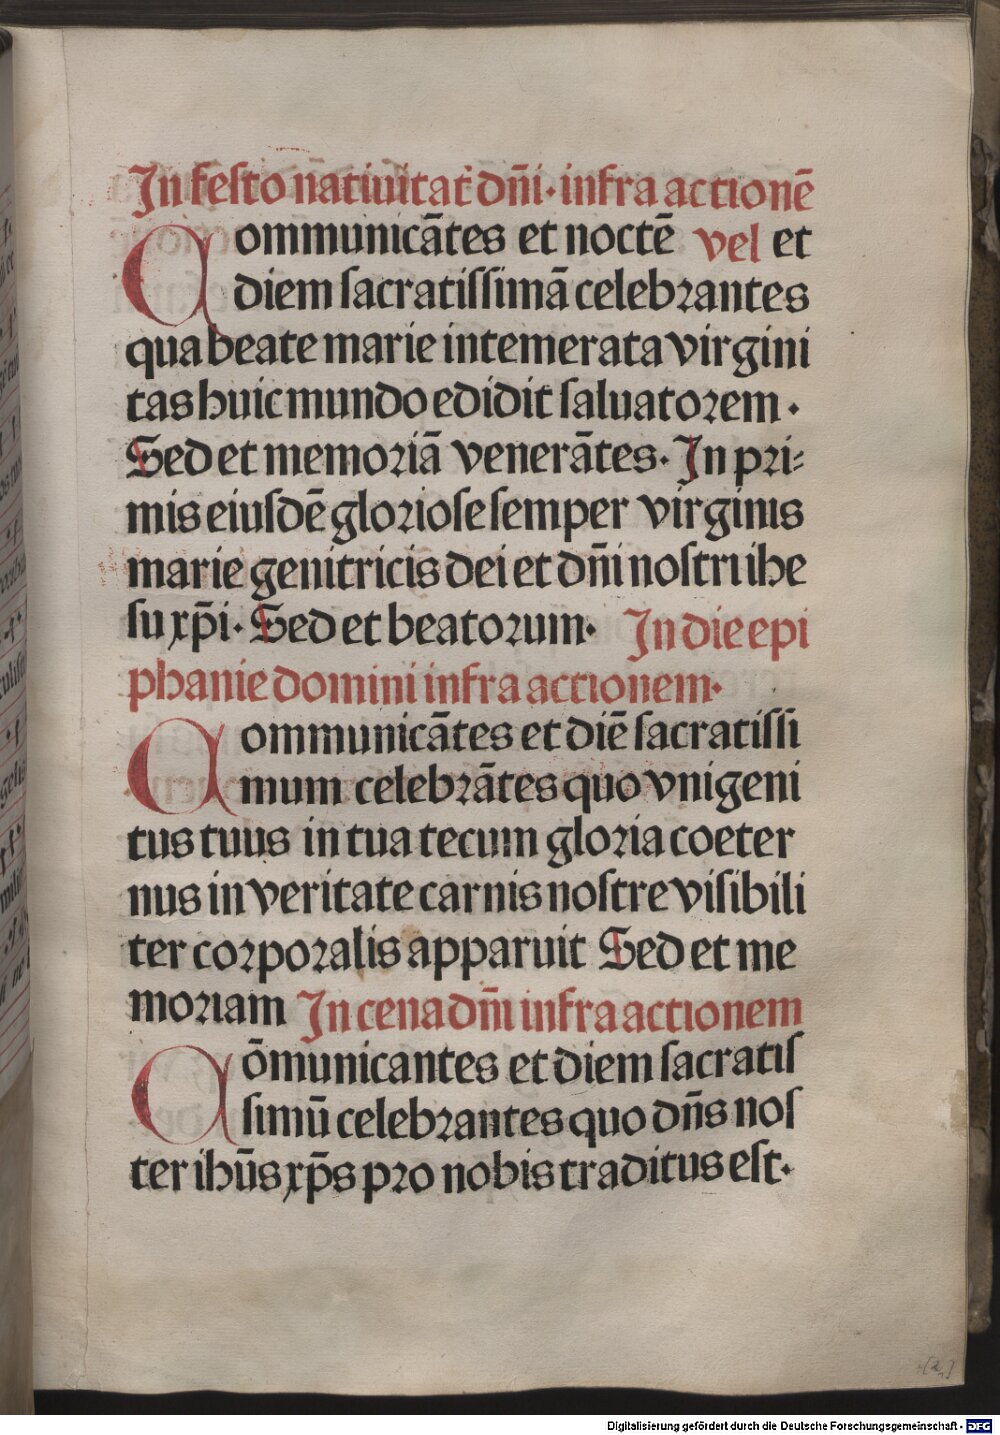 In festo natiuitat᷒ dn̄i · infra actionē
Communicātes et noctē vel et
diem sacratissimā celebrantes
qua beate marie intemerata virgini
tas huic mundo edidit saluatorem ·
Sed et memoriā venerātes · In pri-
mis eiusdē gloriose semper virginis
marie genitricis dei et dn̄i nostri ihe
su xp̄i · Sed et beatorum · In die epi
phanie domini infra actionem ·
Communicātes et diē sacratissi
mum celebrātes quo vnigeni
tus tuus in tua tecum gloria coeter
nus in veritate carnis nostre visibili
ter corporalis apparuit Sed et me
moriam In cena dn̄i infra actionem
Cōmunicantes et diem sacratis
simū celebrantes quo dn̄s nos
ter ihūs xp̄s pro nobis traditus est ·
Digitalisierung gefördert durch die Deutsche Forschungsgemeinschaft · DFG